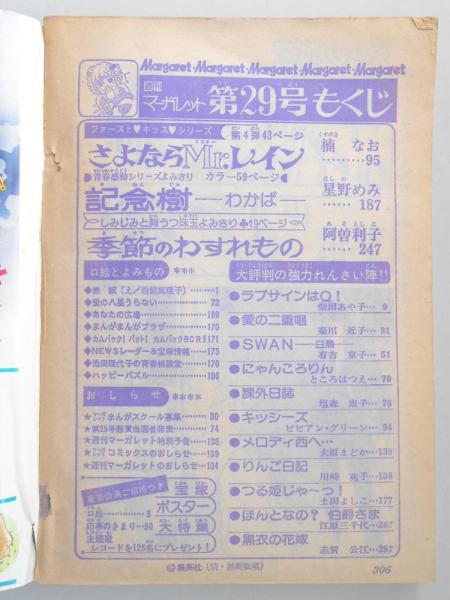 Margaret・Margaret・Margaret・Margaret・Margaret
週刊
マーガレット 第29号もくじ
ファースト♥キッス♥シリーズ
第4弾43ページ
さよならMr.レイン
ミスター
楠 なお
くすのき
………95
●青春感動シリーズよみきり カラー59ページ
記念樹―わかば―
きねんじゅ
星野めみ
ほしの
……187
しみじみと潤うつ珠玉よみきり♣19ページ
季節のわすれもの
阿曽利子
あそとしこ
……247
口絵とよみもの ***
◆表 紙(え/岩舘真理子)………1
◆愛の八星うらない………72
◆あなたの広場………168
◆まんがまんがプラザ………170
◆カムバック!バット! カムバックBCR!!171
◆NEWSレーダー&宝塚情報……175
◆池田理代子の青春相談室……176
◆ハッピーパズル………186
おしらせ ***
★まんがスクール募集………30
★第25号懸賞当選者発表………74
★週刊マーガレット特別予告……138
★コミックスのおしらせ………169
★週刊マーガレットのおしらせ…194
東京公演ご招待つき
宝塚
ポスター
大特集
口絵………3
応募のきまり…50
主題歌
レコードを125名にプレゼント!
大評判の強力れんさい陣!!
●ラブサインはQ!
柴田あや子… 9
●愛の二重唱
菊川 近子… 31
●SWAN―白鳥―
有吉 京子… 51
●にゃんころりん
ところはつえ… 70
●課外日誌
塩森 恵子… 75
●キッシーズ
ビビアン・グリーン… 94
●メロディ西へ…
大原まどか…139
●りんご日記
川崎 苑子…158
●つる姫じゃ～っ!
土田よしこ…177
●ほんとなの? 伯爵さま
江原三千代…267
●黒衣の花嫁
志賀 公江…287
©集英社(禁・無断転載)
306